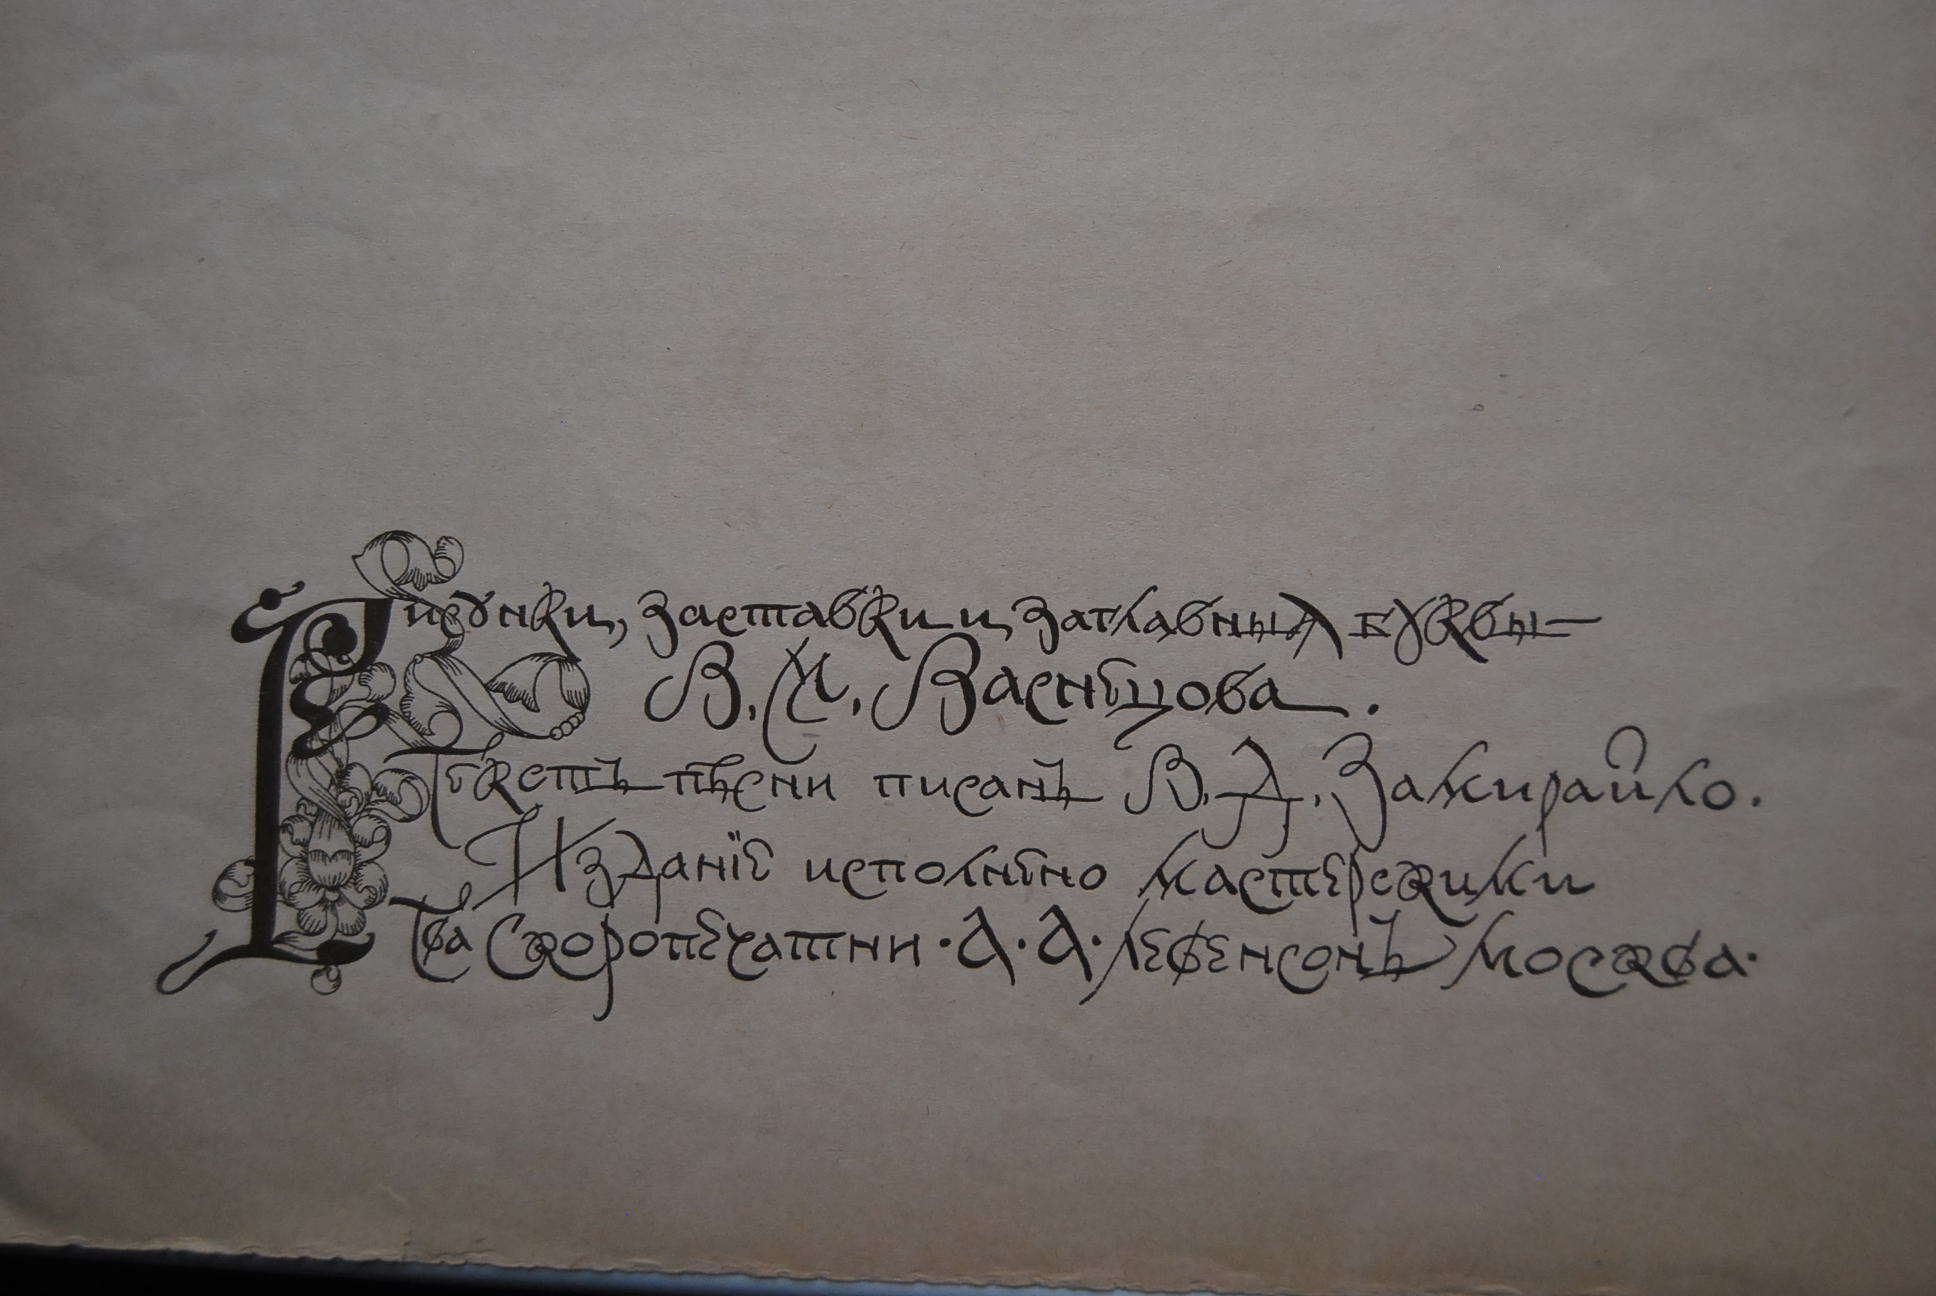 Рисунки, заставки и заглавныя буквы
В. М. Васнецова.
Текстъ пѣсни писанъ В. Д. Замирайло.
Изданіе исполнено мастерскими
Тва Скоропечатни · А · А · Левенсонъ Москва ·